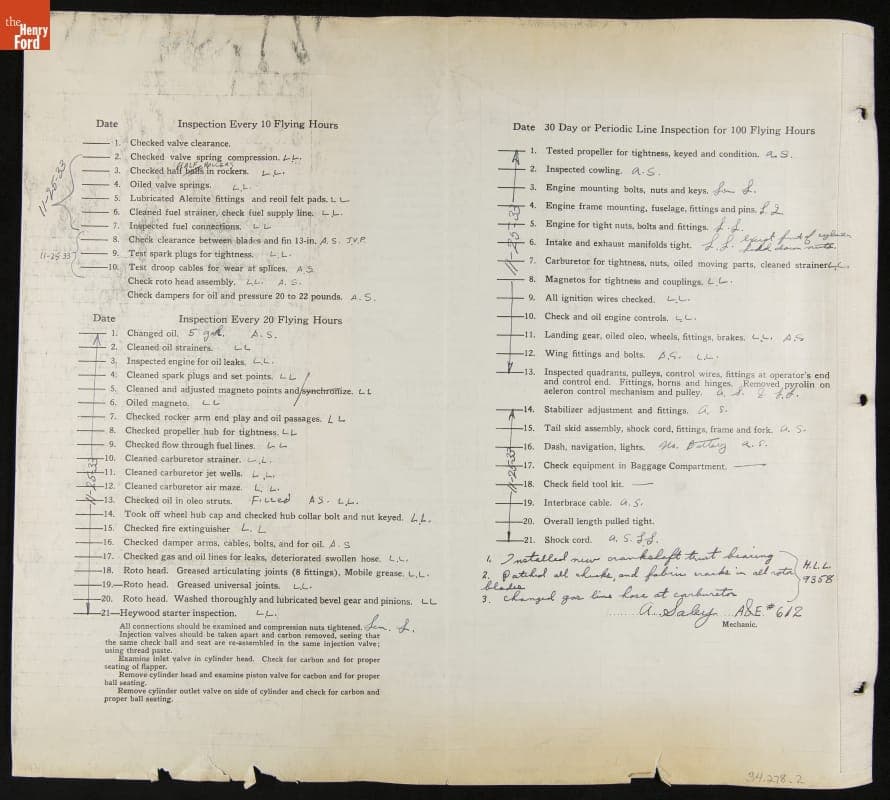 the
Henry
Ford
Date Inspection Every 10 Flying Hours
11-25-33
1. Checked valve clearance.
2. Checked valve spring compression. L.L.
HALF ROLLERS
3. Checked half balls in rockers. L.L.
4. Oiled valve springs. L.L.
5. Lubricated Alemite fittings and reoil felt pads. L L
6. Cleaned fuel strainer, check fuel supply line. L.L.
7. Inspected fuel connections. L L
8. Check clearance between blades and fin 13-in. A.S. J.V.P.
11-25-33
9. Test spark plugs for tightness. L.L.
10. Test droop cables for wear at splices. A.S
Check roto head assembly. L.L. A.S.
Check dampers for oil and pressure 20 to 22 pounds. A.S.
Date Inspection Every 20 Flying Hours
11-25-33
1. Changed oil. 5 gal. A.S.
2. Cleaned oil strainers. L L
3. Inspected engine for oil leaks. L.L.
4. Cleaned spark plugs and set points. L L
5. Cleaned and adjusted magneto points and/synchronize. L L
6. Oiled magneto. L L
7. Checked rocker arm end play and oil passages. L L
8. Checked propeller hub for tightness. L L
9. Checked flow through fuel lines. L L
10. Cleaned carburetor strainer. L.L.
11. Cleaned carburetor jet wells. L.L.
12. Cleaned carburetor air maze. L. L.
13. Checked oil in oleo struts. Filled AS. L.L.
14. Took off wheel hub cap and checked hub collar bolt and nut keyed. L.L.
15. Checked fire extinguisher L. L
16. Checked damper arms, cables, bolts, and for oil. A.S
17. Checked gas and oil lines for leaks, deteriorated swollen hose. L.L.
18. Roto head. Greased articulating joints (8 fittings), Mobile grease. L.L.
19. Roto head. Greased universal joints. L.L.
20. Roto head. Washed thoroughly and lubricated bevel gear and pinions. L L
21 Heywood starter inspection. L.L.
All connections should be examined and compression nuts tightened. Len L.
Injection valves should be taken apart and carbon removed, seeing that
the same check ball and seat are re-assembled in the same injection valve;
using thread paste.
Examine inlet valve in cylinder head. Check for carbon and for proper
seating of flapper.
Remove cylinder head and examine piston valve for carbon and for proper
ball seating.
Remove cylinder outlet valve on side of cylinder and check for carbon and
proper ball seating.
Date 30 Day or Periodic Line Inspection for 100 Flying Hours
11-25-33
1. Tested propeller for tightness, keyed and condition. a.S.
2. Inspected cowling. a.S.
3. Engine mounting bolts, nuts and keys. Len L.
4. Engine frame mounting, fuselage, fittings and pins. L L
5. Engine for tight nuts, bolts and fittings. L.L.
6. Intake and exhaust manifolds tight. L.L. Except front of cylinder
hold down nuts.
7. Carburetor for tightness, nuts, oiled moving parts, cleaned strainer L.L.
8. Magnetos for tightness and couplings. L.L.
9. All ignition wires checked. L.L.
10. Check and oil engine controls. L.L.
11. Landing gear, oiled oleo, wheels, fittings, brakes. L.L. A.S
12. Wing fittings and bolts. A.S. L.L.
13. Inspected quadrants, pulleys, control wires, fittings at operator's end
and control end. Fittings, horns and hinges. Removed pyrolin on
aeleron control mechanism and pulley. a. S. & L.L.
11-25-33
14. Stabilizer adjustment and fittings. a. S.
15. Tail skid assembly, shock cord, fittings, frame and fork. a. S.
16. Dash, navigation, lights. No. Battery a.S.
17. Check equipment in Baggage Compartment.
18. Check field tool kit.
19. Interbrace cable. a.S.
20. Overall length pulled tight.
21. Shock cord. a.S. L.L.
1. Installed new crankshaft trust bearing
2. Patched all chinks, and fabric cracks in all rotor
blades
3. Changed gas line hose at carburetor
H.L.L
9358
A. Saley A&E #612
Mechanic.
34.278.2